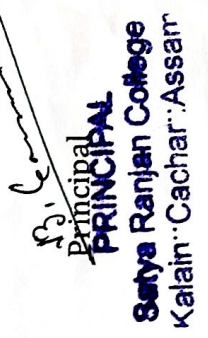 Principal
PRINCIPAL
Satya Ranjan College
Kalain::Cachar::Assam